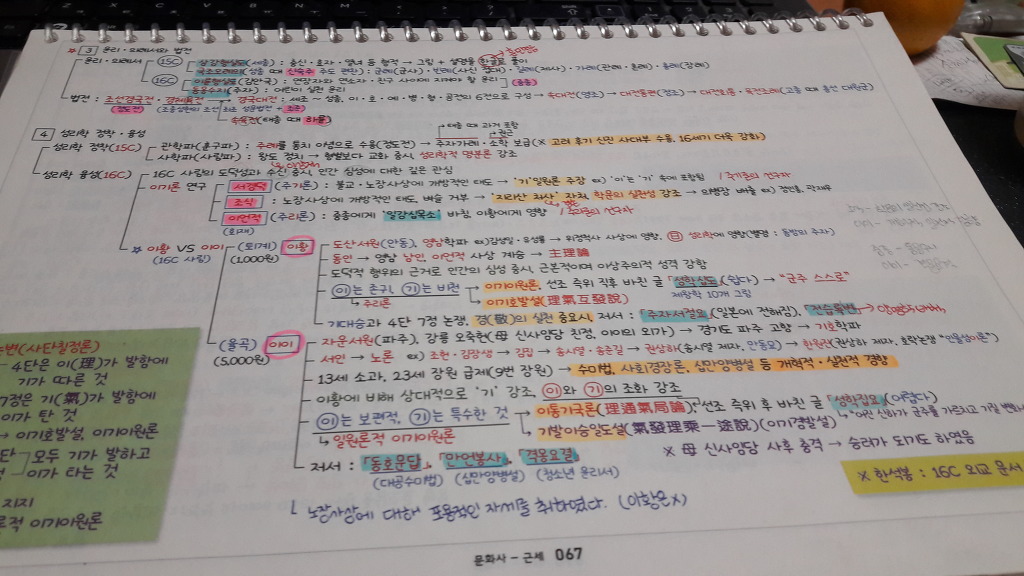 3 윤리·의례서와 법전
윤리·의례서 15C 삼강행실도(세종) : 충신·효자·열녀 등 행적 → 그림 + 설명을 한글로 풀이
국조오례의(성종 때 신숙주 주도 편찬) : 군례(군사)·빈례(사신 접대)·길례(제사)·가례(관례·혼례)·흉례(장례)
16C 이륜행실도(김안국) : 연장자와 연소자·친구 사이에 지켜야 할 윤리 (중종)
동몽수지(주자) : 어린이 실천 윤리
법전 : 조선경국전·경제육전 → 경국대전 : 세조 ~ 성종, 이·호·예·병·형·공전의 6전으로 구성 → 속대전(영조) → 대전통편(정조) → 대전회통·육전조례(고종 때 흥선 대원군)
(정도전) 조준
속육전(태종 때 하륜)
4 성리학 정착·융성
태종 때 과거 포함
권근
성리학 정착(15C) 관학파(훈구파) : 주례를 통치 이념으로 수용(정도전) → 주자가례·소학 보급(× 고려 후기 신진 사대부 수용, 16세기 더욱 강화)
사학파(사림파) : 왕도 정치 → 형벌보다 교화 중시, 성리학적 명분론 강조
성리학 융성(16C) 16C 사림의 도덕성과 수신 중시, 인간 심성에 대한 깊은 관심
이기론 연구 서경덕 (주기론) : 불교·노장사상에 개방적인 태도 → '기'일원론 주장 ex) '이'는 '기' 속에 포함됨 / 주기론의 선구자
조식 : 노장사상에 개방적인 태도, 벼슬 거부 → "지리산 처사" 자처, 학문의 실천성 강조 → 의병장 배출 ex) 정인홍, 곽재우
이언적 (주리론) : 중종에게 '일강십목소' 바침, 이황에게 영향 / 주리론의 선구자
(회재)
이황 VS 이이
(16C 사림)
(퇴계) 이황
(1,000원)
도산서원(안동), 영남학파 ex) 김성일·유성룡 → 위정척사 사상에 영향, 日 성리학에 영향(별명 : 동방의 주자)
동인 → 영남 남인, 이언적 사상 계승 → 主理論
도덕적 행위의 근거로 인간의 심성 중시, 근본적이며 이상주의적 성격 강함
이는 존귀, 기는 비천 → 이기이원론, 선조 즉위 직후 바친 글 「성학십도」(쉽다) → "군주 스스로"
주리론 이기호발설(理氣互發說) 제왕학 10개 그림
기대승과 4단 7정 논쟁, 경(敬)의 실천 중요시, 저서 : 「주자서절요」(일본에 전해짐), 「전습록변」 → 양명학 비판
(율곡) 이이
(5,000원)
자운서원(파주), 강릉 오죽헌(母 신사임당 친정, 이이의 외가) → 경기도 파주 고향 → 기호학파
서인 → 노론 ex) 조헌·김장생 → 김집 → 송시열·송준길 → 권상하(송시열 제자, 만동묘) → 한원진(권상하 제자, 호락논쟁 "인물성이론")
13세 소과, 23세 장원 급제(9번 장원) → 수미법, 사회경장론, 십만양병설 등 개혁적·실천적 경향
이황에 비해 상대적으로 '기' 강조, 이와 기의 조화 강조
이는 보편적, 기는 특수한 것 → 이통기국론(理通氣局論), 선조 즉위 후 바친 글 「성학집요」(어렵다)
일원론적 이기이원론 기발이승일도설(氣發理乘一途說)
"어진 신하가 군주를 가르치고
저서 : 「동호문답」, 「만언봉사」, 「격몽요결」
(대공수미법) (십만양병설) (청소년 윤리서)
※ 母 신사임당 사후 충격 → 승려가 되기도 하였음
노장사상에 대해 포용적인 자세를 취하였다. (이황은X)
(사단칠정론)
4단은 이(理)가 발함에
기가 따른 것
기(氣)가 발함에
이가 탄 것
→ 이기호발설, 이기이원론
모두 기가 발하고
이가 타는 것
지지
이기이원론
※ 한석봉 : 16C 외교 문서
문화사 – 근세 067